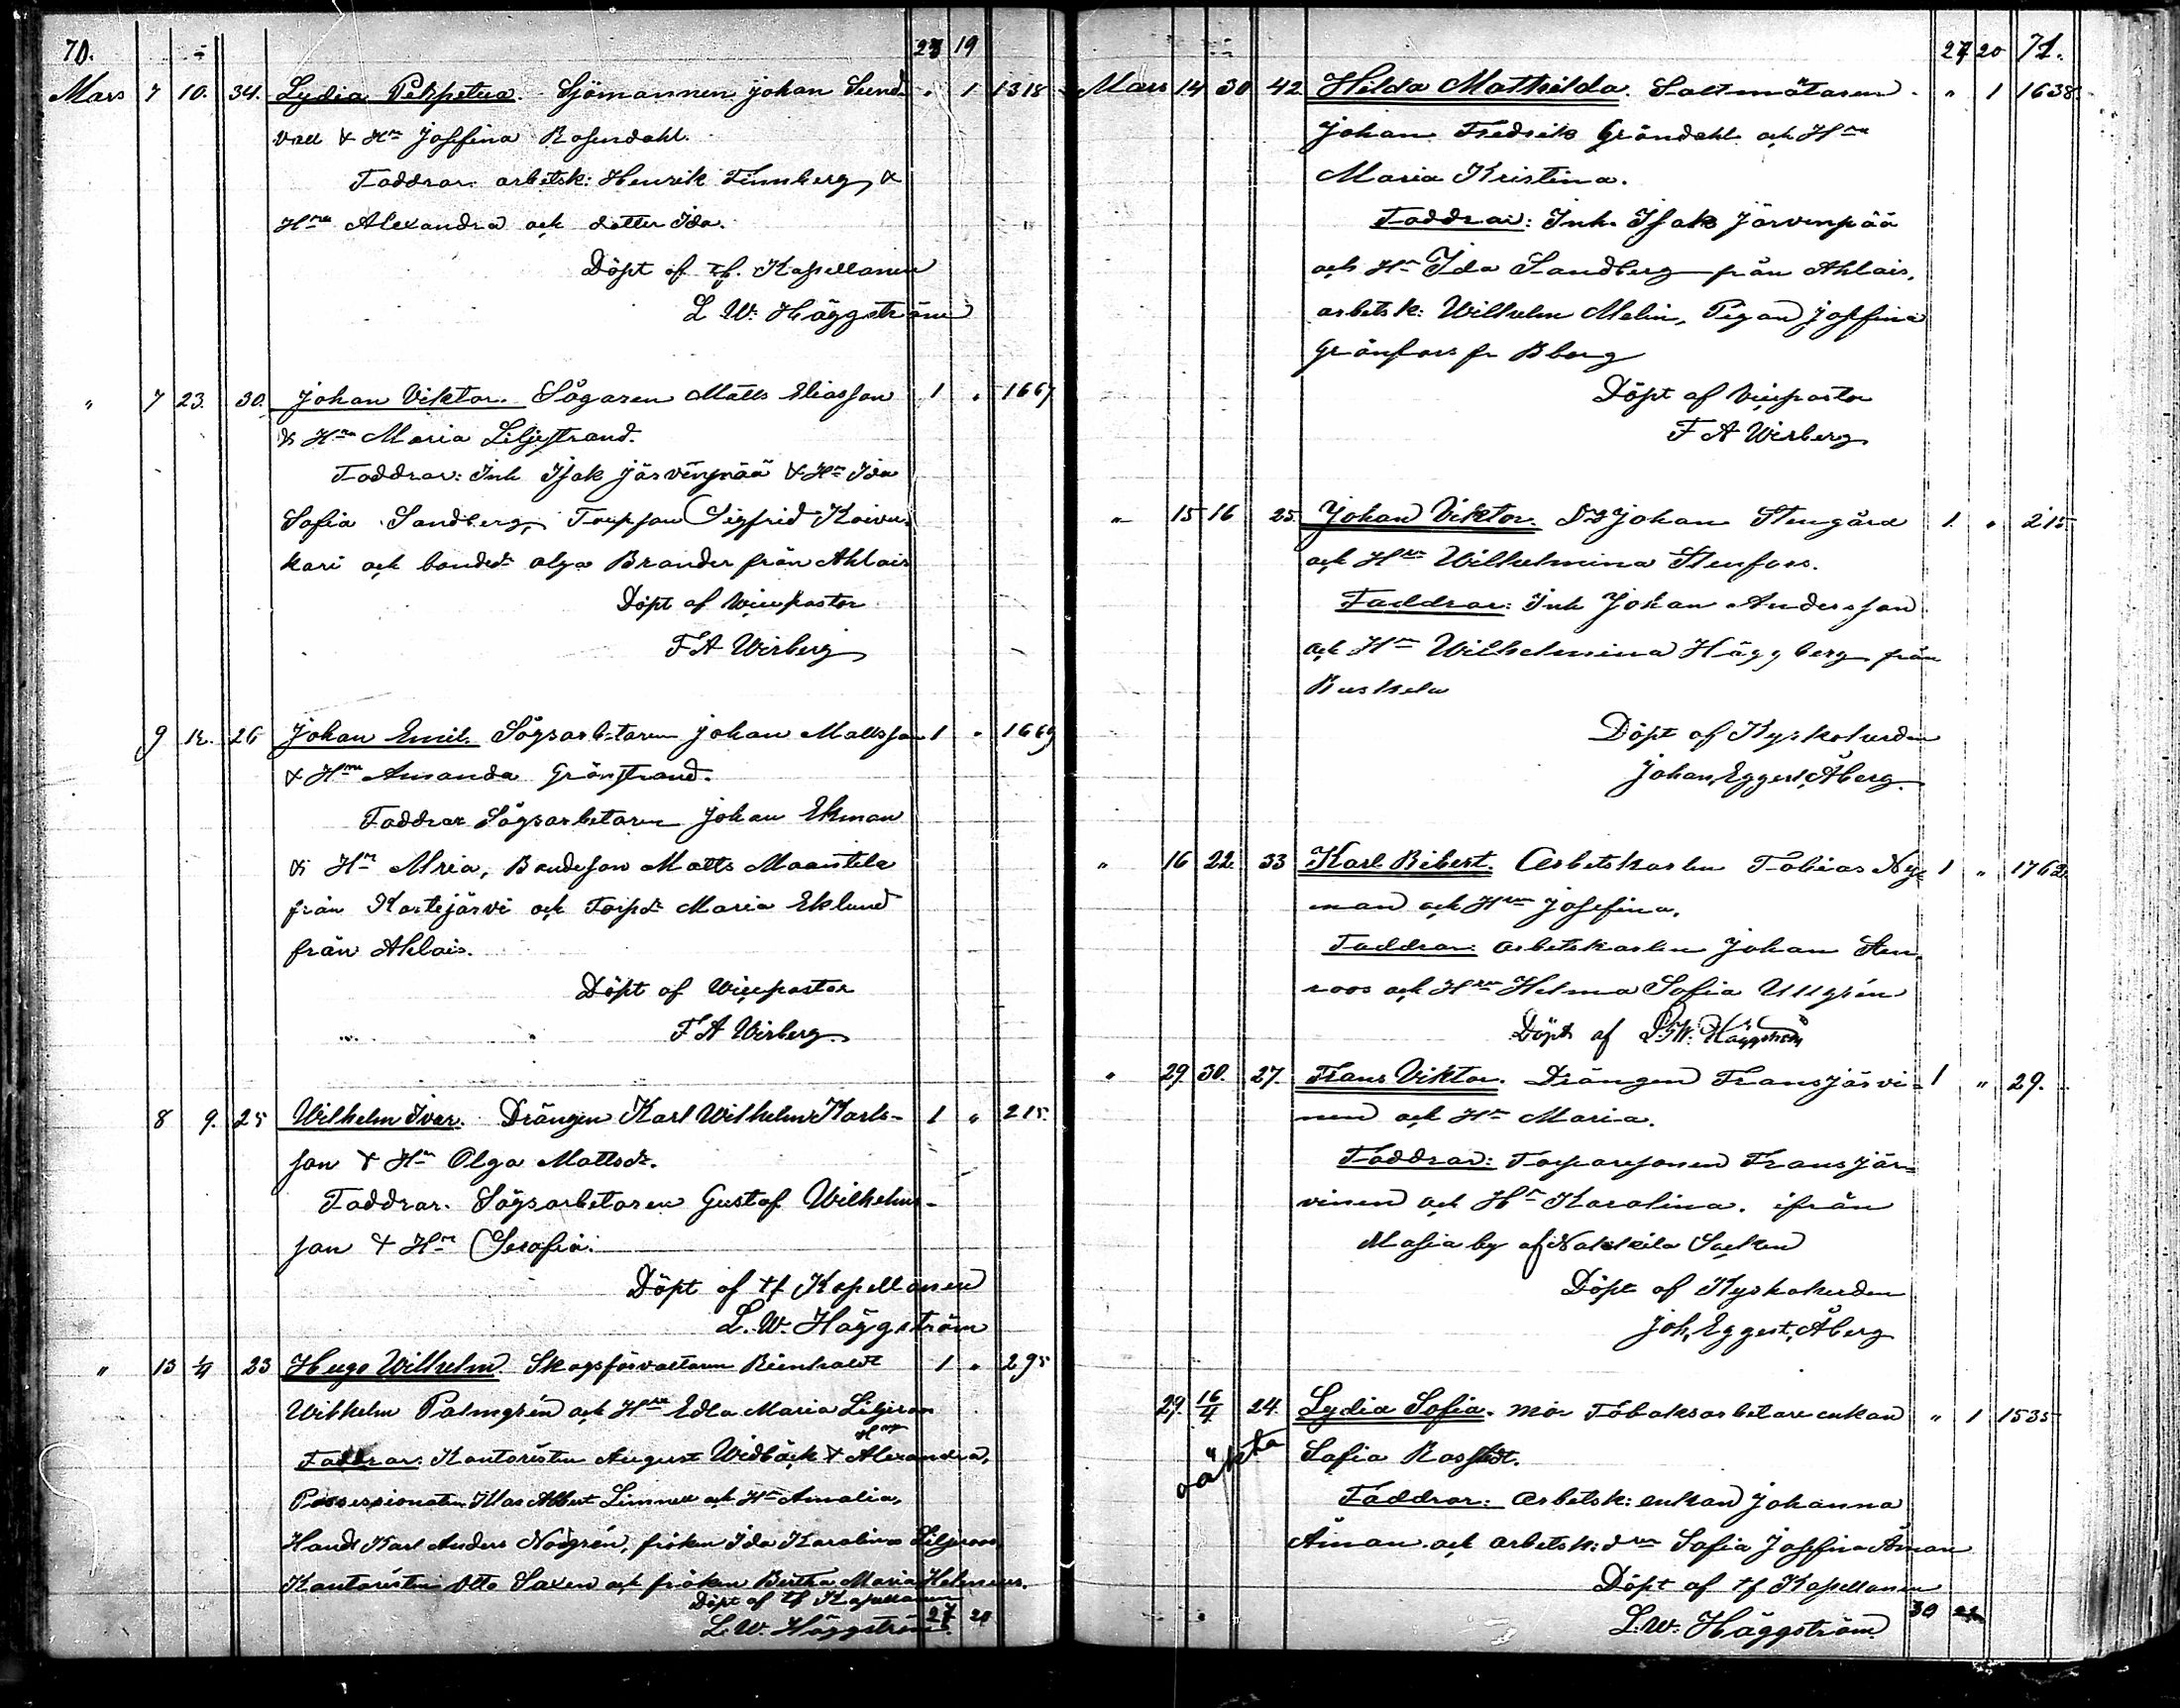 70. 27 19
Mars 7 10. 34. Lydia Perpetua. Sjömannen Johan Sund- " 1 1318
vall & Hru Josefina Rosendahl.
Faddrar: arbetsk: Henrik Finnberg &
Hru Alexandra och dotter Ida.
Döpt af tf. Kapellanen
L. W. Häggström
" 7 23. 30. Johan Viktor. Sågaren Matts Eliasson 1 " 1667
& Hru Maria Liljestrand.
Faddrar: Inh Isak Järvenpää & Hn Ida
Sofia Sandberg, Torpson Sigfrid Koivu-
kari och bonded: Olga Brander från Ahlais
Döpt af Vicepastor
F A Wirberg
9 12. 26 Johan Emil. Sågsarbetaren Johan Mattsson 1 " 1669
& Hru Amanda Grönstrand.
Faddrar Sågsarbetaren Johan Ekman
& Hn Mria, Bondeson Matts Maantila
från Kortejärvi och Torpdr Maria Eklund
från Ahlais.
Döpt af Vicepastor
F A Wirberg
8 9. 25 Wilhelm Ivar. Drängen Karl Wilhelm Karls- 1 " 215.
son & Hn Olga Mattsdr.
Faddrar. Sågsarbetaren Gustaf Wilhelms-
son & Hn Serafia.
Döpt af tf Kapellanen
L. W. Häggström
" 13 1/4 23 Hugo Wilhelm. Skogsförvaltaren Reinholdt 1 " 295
Wilhelm Palmgrén och Hru Edla Maria Liljeroos
Faddrar: Kontoristen August Widbäck & Hru Alexandra,
Possessionaten Klas Albert Limnell och Hn Amalia,
Handl Karl Anders Nordgrén, fröken Ida Karolina Liljeroos,
Kontoristen Otto Saxen och fröken Bertha Maria Helenius.
Döpt af tf Kapellanen
L. W. Häggström. 27 20
27 20 71.
Mars 14 30 42 Hilda Mathilda. Saltmätaren " 1 1638.
Johan Fredrik Gröndahl och Hru
Maria Kristina.
Faddrar: Inh. Isak Järvenpää
och Hn Ida Sandberg från Ahlais,
arbetsk: Wilhelm Melin, Pigan Josefina
Grönfors fr Bborg
Döpt af Vicepastor
F A Wirberg
" 15 16 25 Johan Viktor. Johan Stengård 1. " 215
och Hru Wilhelmina Stenfors.
Faddrar: Inh Johan Andersson
och Hn Wilhelmina Häggberg från
Döpt af Kyrkoherden
Johan Eggert Åberg.
" 16 22. 33 Karl Ribert. Arbetskarlen Tobias Ny- 1 " 1762
man och Hru Josefina.
Faddrar: arbetskarlen Johan Sten-
roos och Hru Helma Sofia Ullgrén
Döpt af L. W. Häggström
" 29 30. 27. Frans Viktor. Drängen Frans Järvi- 1 " 29.
nen och Hn Maria.
Faddrar: Torparsonen Frans Jär-
vinen och Hn Karolina. ifrån
Masia by af Nakkila Socken
Döpt af Kyrkoherden
Joh. Eggert Åberg
29. 16/4 24. Lydia Sofia. mor Tobaksarbetare enkan " 1 1535
oäkta Sofia Rosstedt.
Faddrar: Arbetsk: enkan Johanna
Åman och arbetsk: dn Sofia Josefina Åman
Döpt af tf Kapellanen
L. W. Häggström. 30